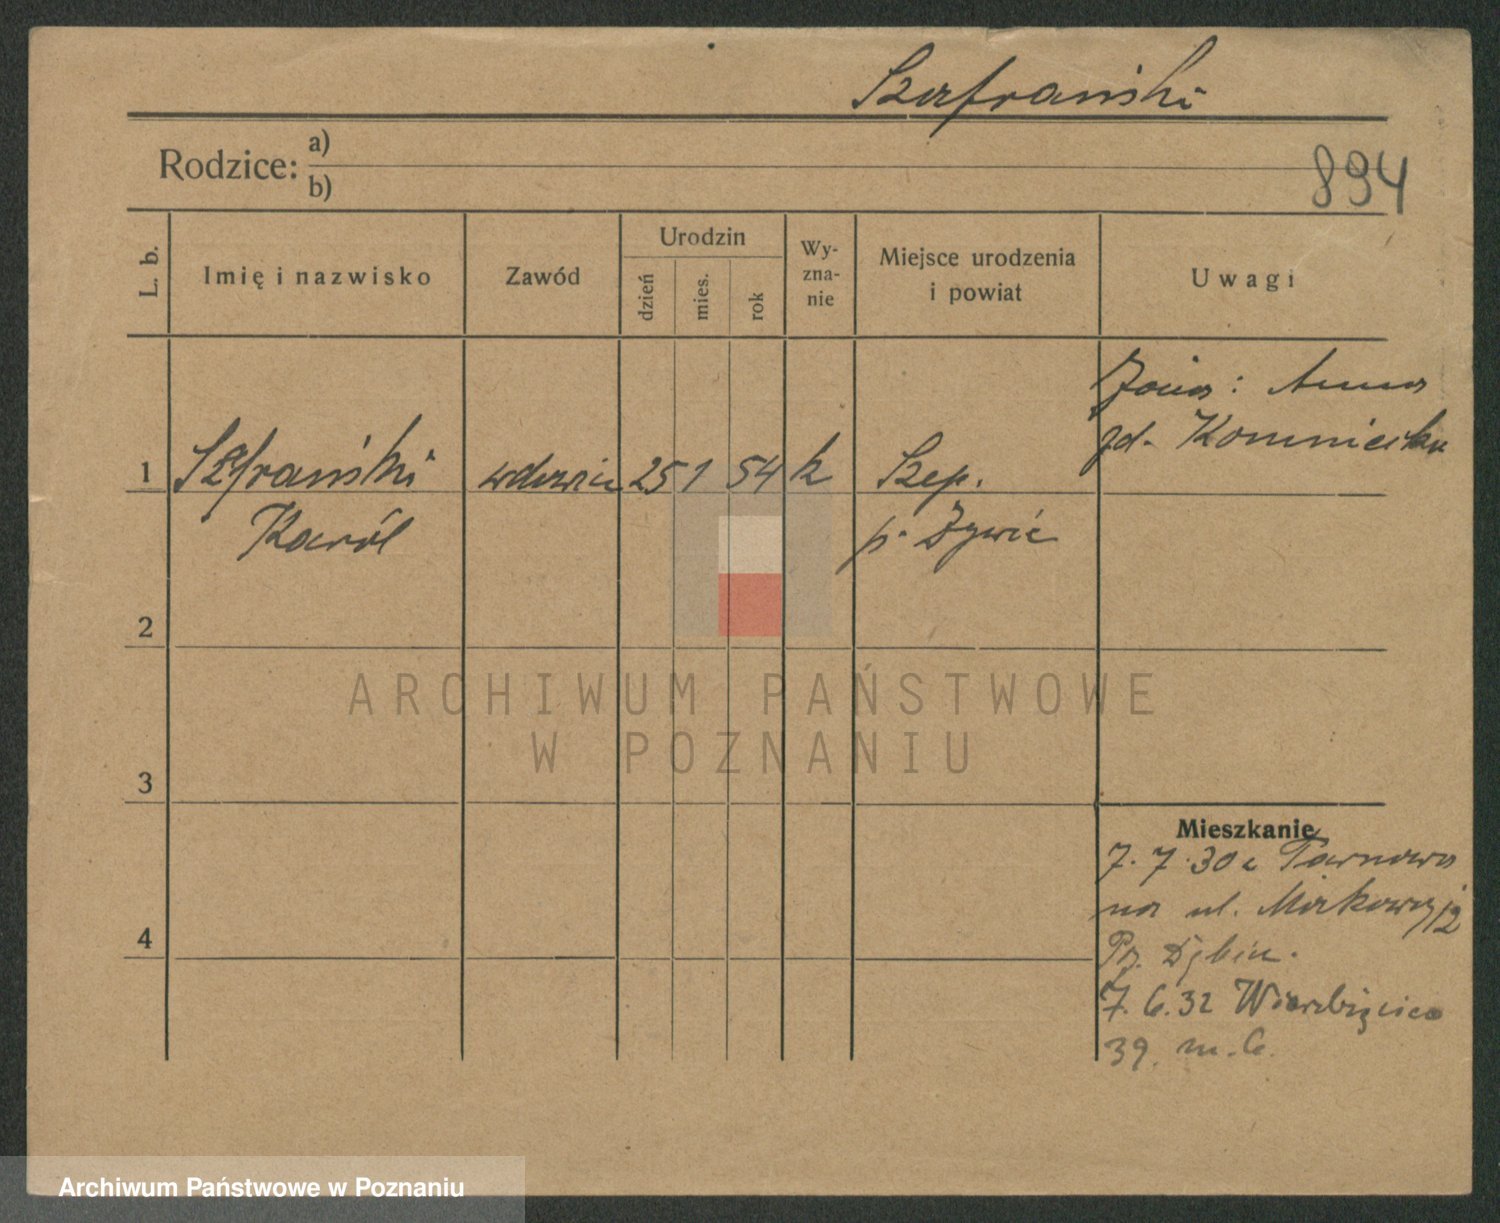 Szafrański
894
Rodzice: a)
b)
L. b.
Imię i nazwisko
Zawód
Urodzin
dzień
mies.
rok
Wy-
zna-
nie
Miejsce urodzenia
i powiat
Uwagi
Żona: Anna
1 Szafrański wdowiec 25 1 54 k Szep.
Karól
p. Żywiec
2
3
4
Mieszkanie
7. 7. 30 z Tarnowa
na ul.
Pz. Dębiec.
7. 6. 32 Wierzbięcice
39. m. 6.
ARCHIWUM PAŃSTWOWE
W POZNANIU
Archiwum Państwowe w Poznaniu